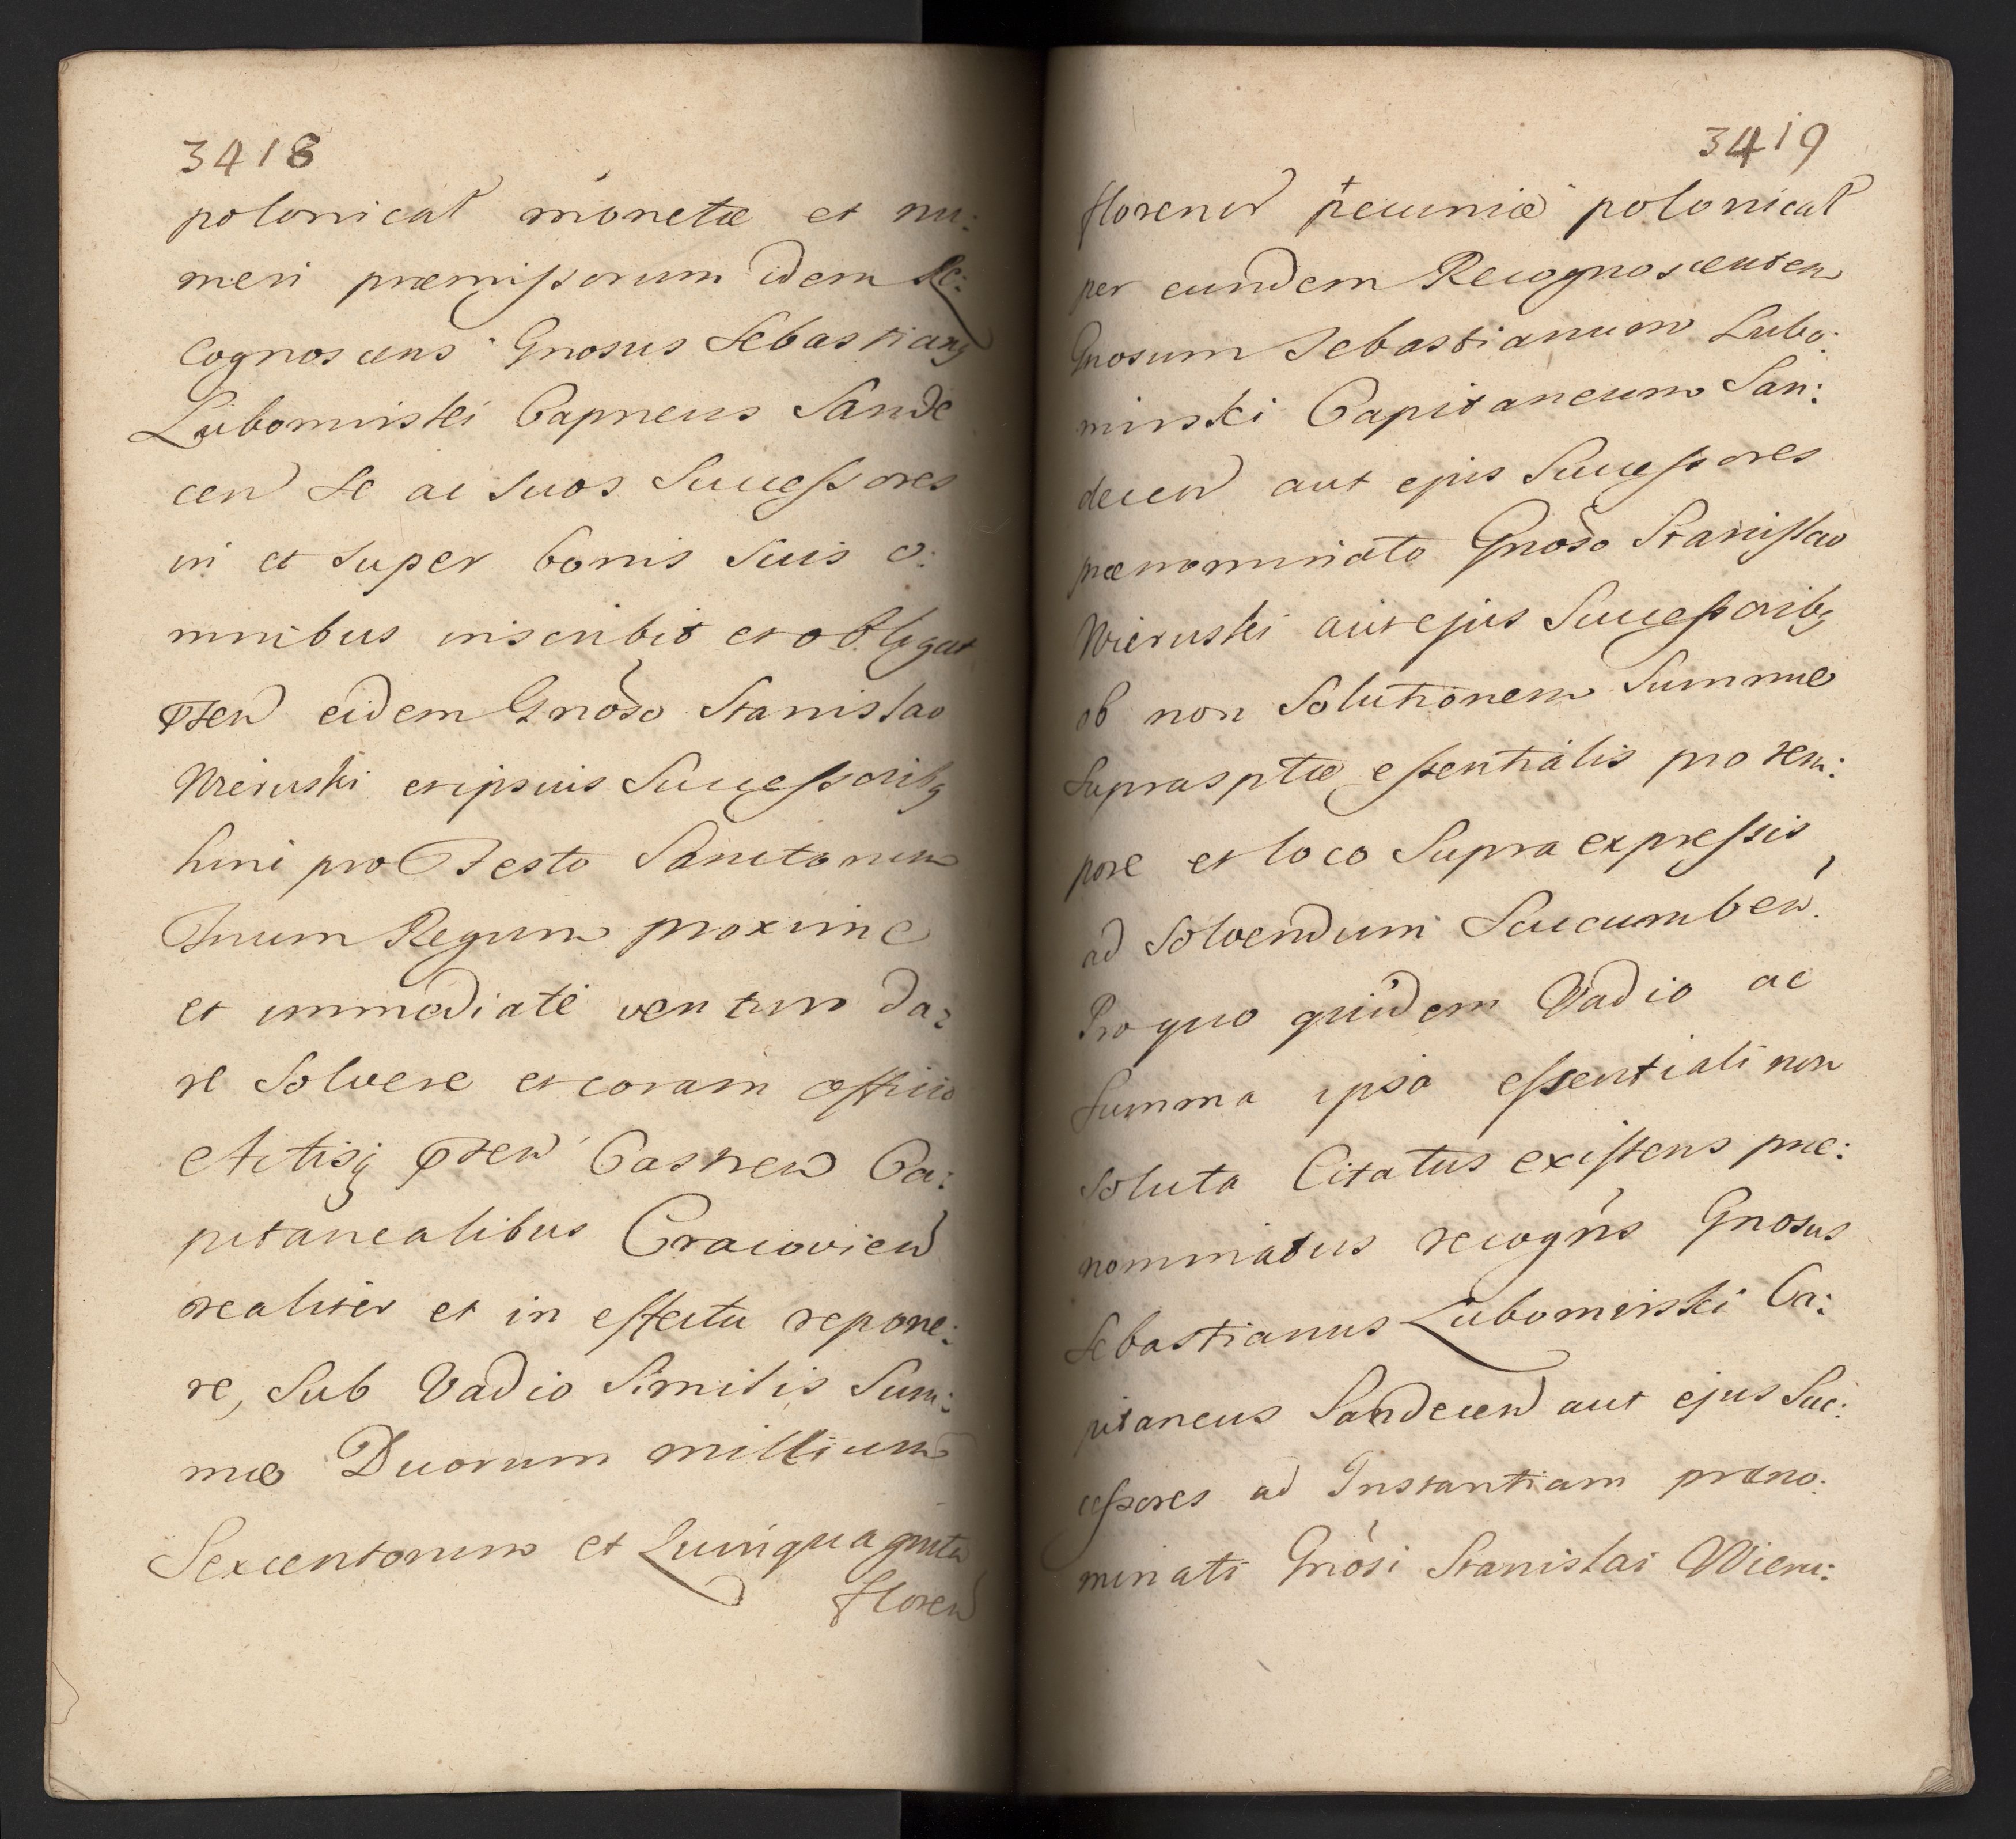 3418
polonical monetæ et nu:
meri præmissorum idem Re:
cognoscens Gnosus Sebastianq
Lubomirski Capneus Sande
cen Se ac suos Successores
in et super bonis suis o:
mnibus inscribit et obligat
pten eidem Gnõso Stanislao
Wieruski et ipsius Successoribq
hinc pro Festo Sanctorum
Trium Regum proxime
et immediatè venturo da:
re solvere et coram officio
Actisq pten Castren Ca:
pitanealibus Cracovien
realiter et in effectu repone:
re, Sub Vadio Similis Sum:
mæ Duorum millium
Sexcentorum et Quinquaginta
floren
3419
floren pecuniæ polonical
per eundem Recognoscenten
Gnosum Sebastianum Lubo:
mirski Capitaneum San:
decen aut ejus Successores
prænominato Gnõso Stanislao
Wieruski aut ejus Successoribq
ob non Solutionem Summæ
Suprasptæ essentialis pro tem:
pore et loco Supra expressis
ad Solvendum Succumben.
Pro quo quidem Vadio ac
Summa ipsa essentiali non
soluta Citatus existens præ:
nominatus recogñs Gnosus
Sebastianus Lubomirski Ca:
pitaneus Sandecen aut ejus Suc:
cessores ad Instantiam præno:
minati Gnõsi Stanislai Wieru: